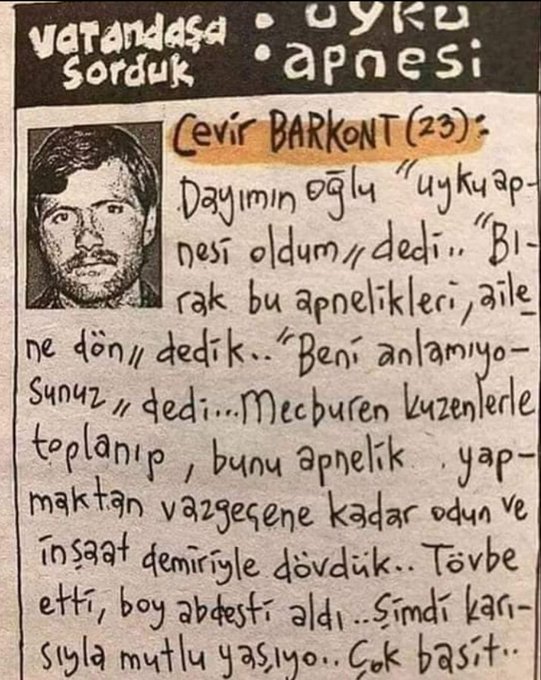 vatandaşa sorduk
• uyku
• apnesi
Cevir BARKONT (23):
Dayımın oğlu "uyku ap-
nesi oldum" dedi.. "Bı-
rak bu apnelikleri, aile
ne dön" dedik.. "Beni anlamıyo-
sunuz" dedi... Mecburen kuzenlerle
toplanıp, bunu apnelik yap-
maktan vazgeçene kadar odun ve
inşaat demiriyle dövdük.. Tövbe
etti, boy abdesti aldı.. Şimdi karı-
sıyla mutlu yaşıyo.. Çok basit..